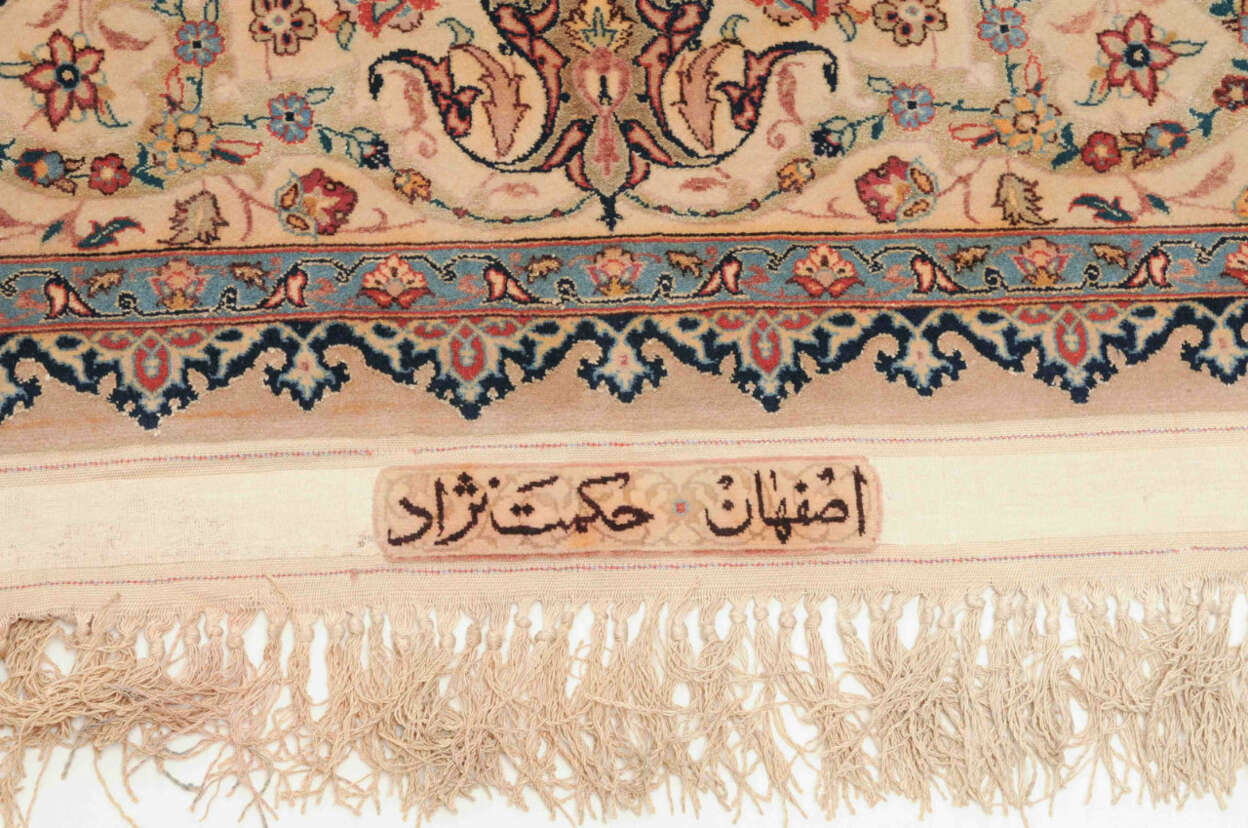 اصفهان حکمت نژاد